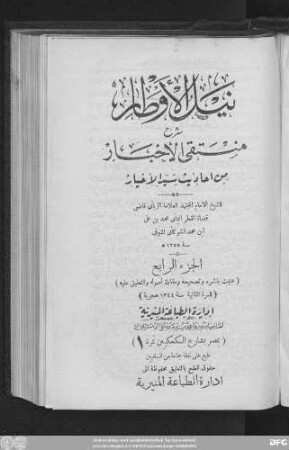 نيل الأوطار
شرح
منتقى الأخبار
من أحاديث سيد الأخيار
للشيخ الإمام المجتهد العلامة الرباني قاضي
قضاة القطر اليماني محمد بن علي
ابن محمد الشوكاني المتوفى
سنة ١٢٥٥ ه
الجزء الرابع
( عنيت بنشره وتصحيحه ومقابلة أصوله والتعليق عليه )
( للمرة الثانية سنة ١٣٤٤ هجرية )
إدارة الطباعة المنيرية
( بمصر بشارع الكحكيين نمرة ١ )
حقوق الطبع بالتعليق محفوظة الى
إدارة الطباعة المنيرية